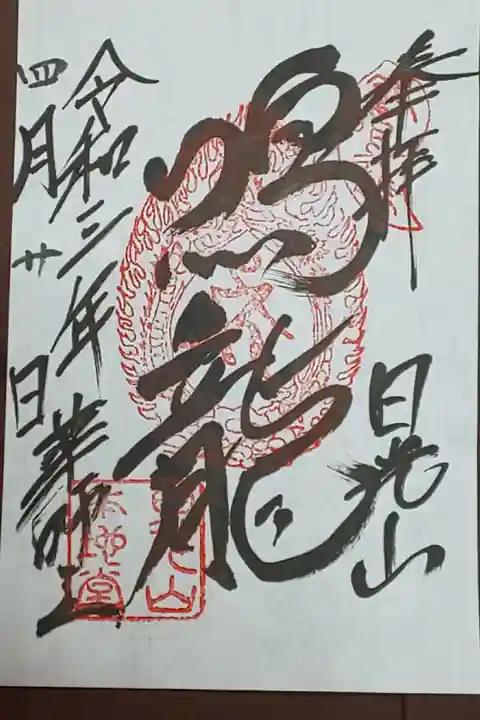 奉拝
日光山
鳴龍
令和三年
四月廿日
薬師堂